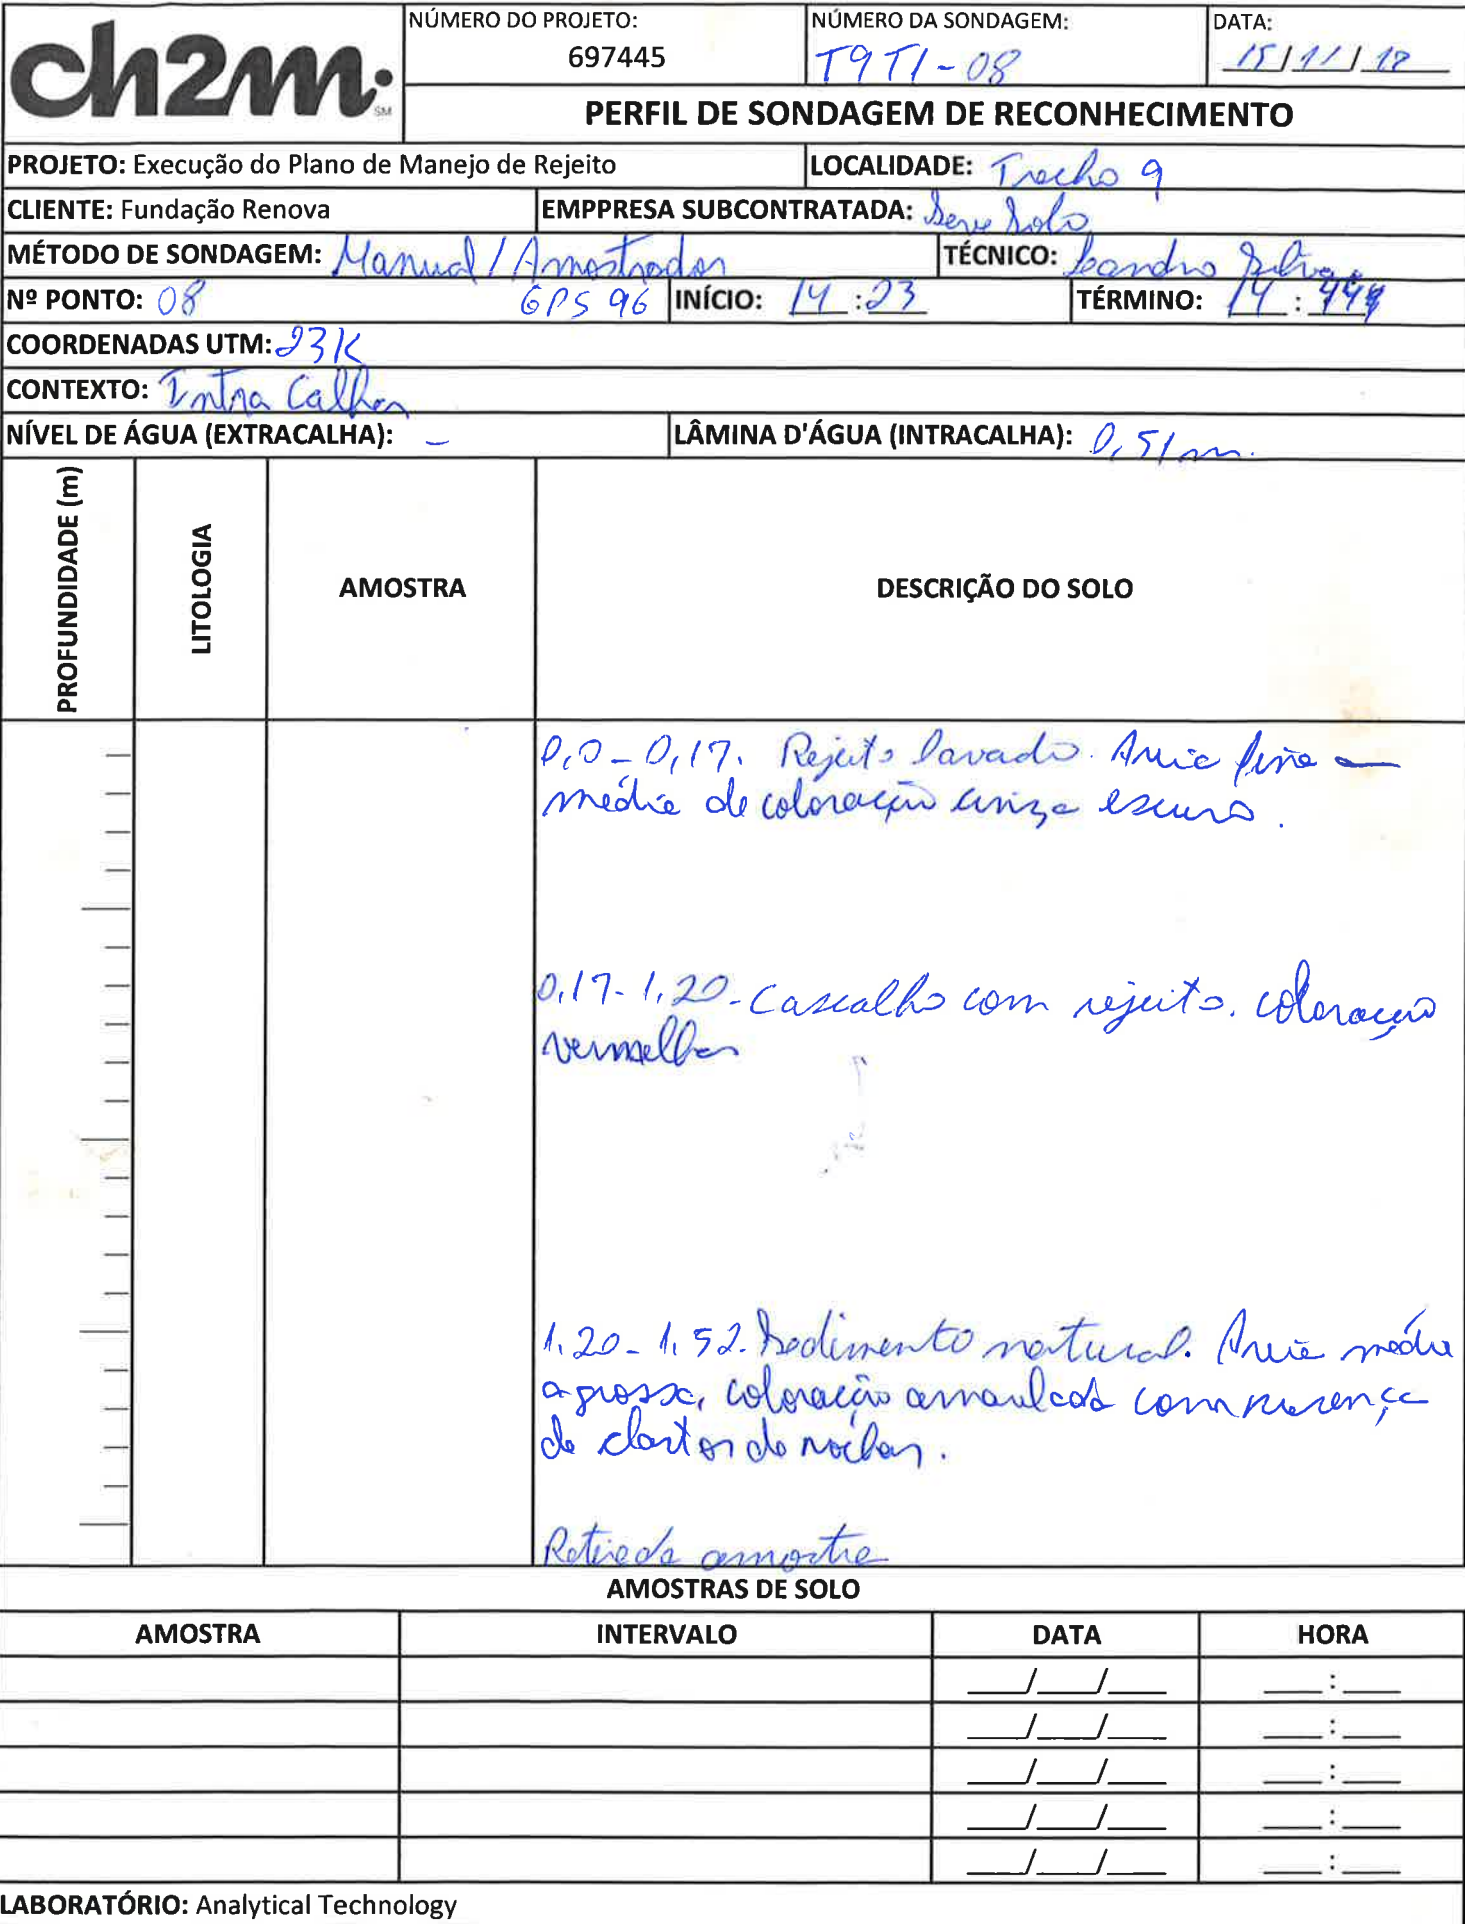 ch2m
SM
NÚMERO DO PROJETO:
697445
NÚMERO DA SONDAGEM:
T9T1-08
DATA:
15/11/17
PERFIL DE SONDAGEM DE RECONHECIMENTO
PROJETO: Execução do Plano de Manejo de Rejeito
LOCALIDADE: Trecho 9
CLIENTE: Fundação Renova
EMPPRESA SUBCONTRATADA: Serv Solo
MÉTODO DE SONDAGEM: Manual / Amostrador
TÉCNICO: Leandro Silva
Nº PONTO: 08 GPS 96
INÍCIO: 14:23
TÉRMINO: 14:
COORDENADAS UTM: 23K
CONTEXTO: Intra Calha
NÍVEL DE ÁGUA (EXTRACALHA): -
LÂMINA D'ÁGUA (INTRACALHA): 0,51m.
PROFUNDIDADE (m)
LITOLOGIA
AMOSTRA
DESCRIÇÃO DO SOLO
0,0-0,17. Rejeito lavado. Areia fina a
média de coloração cinza escuro.
0,17-1,20-Cascalho com rejeito. coloração
vermelha
1,20-1,52. Sedimento natural. Areia média
a grossa, coloração amarelada com presença
de clastos de rochas.
Retirada amostra
AMOSTRAS DE SOLO
AMOSTRA
INTERVALO
DATA
HORA
___/___/___ ___:___
___/___/___ ___:___
___/___/___ ___:___
___/___/___ ___:___
___/___/___ ___:___
LABORATÓRIO: Analytical Technology